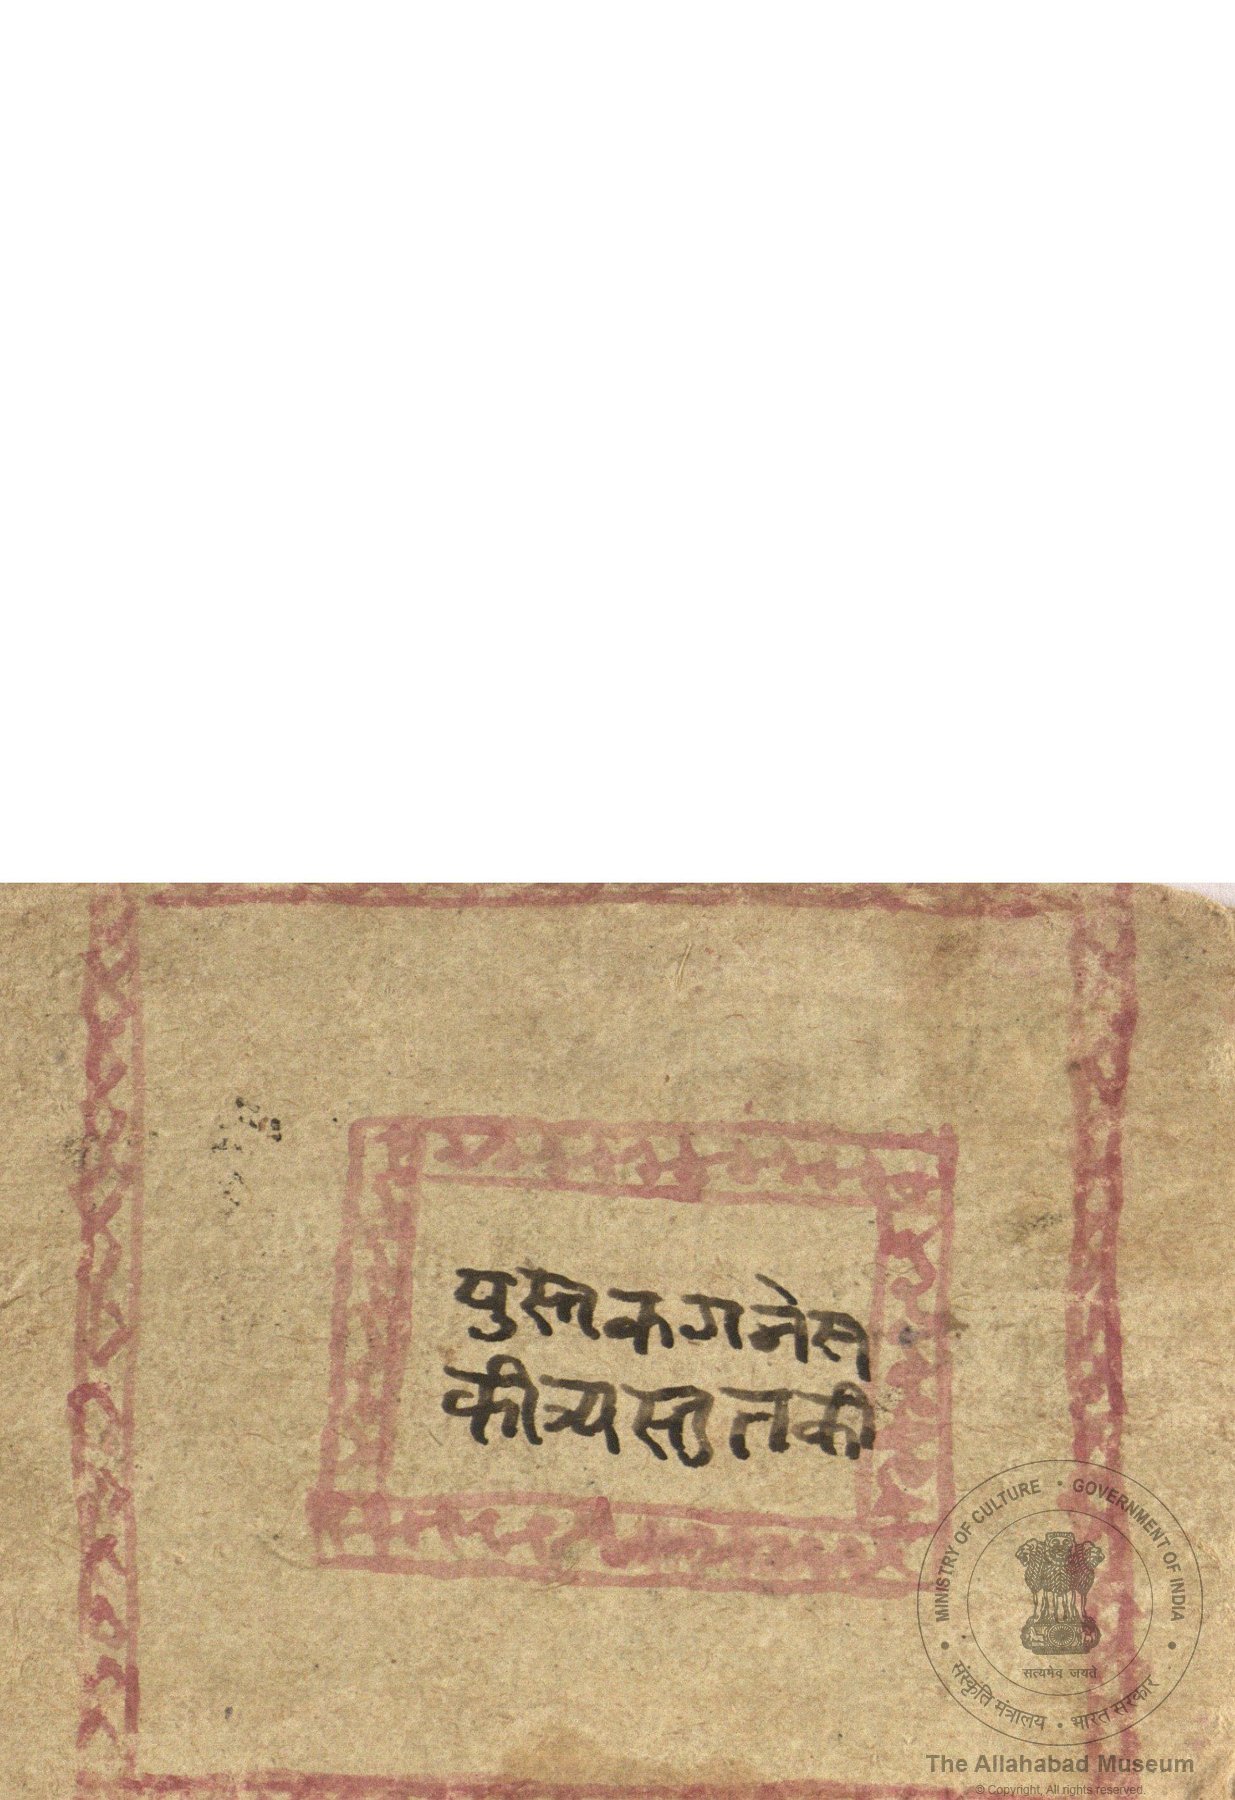 पुस्तक गनेस
की त्र्यस्तुत की
MINISTRY OF CULTURE • GOVERNMENT OF INDIA
सत्यमेव जयते
संस्कृति मंत्रालय • भारत सरकार
The Allahabad Museum
© Copyright, All rights reserved.